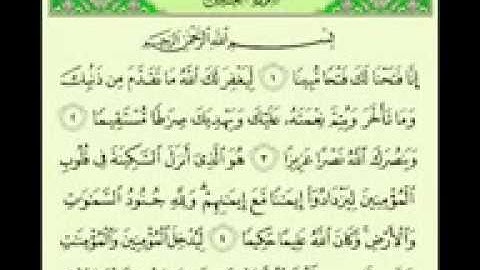 بِسْمِ اللَّهِ الرَّحْمَٰنِ الرَّحِيمِ
إِنَّا فَتَحْنَا لَكَ فَتْحًا مُّبِينًا ١ لِّيَغْفِرَ لَكَ اللَّهُ مَا تَقَدَّمَ مِن ذَنبِكَ
وَمَا تَأَخَّرَ وَيُتِمَّ نِعْمَتَهُ عَلَيْكَ وَيَهْدِيَكَ صِرَاطًا مُّسْتَقِيمًا ٢
وَيَنصُرَكَ اللَّهُ نَصْرًا عَزِيزًا ٣ هُوَ الَّذِي أَنزَلَ السَّكِينَةَ فِي قُلُوبِ
الْمُؤْمِنِينَ لِيَزْدَادُوا إِيمَانًا مَّعَ إِيمَانِهِمْ وَلِلَّهِ جُنُودُ السَّمَاوَاتِ
وَالْأَرْضِ وَكَانَ اللَّهُ عَلِيمًا حَكِيمًا ٤ لِّيُدْخِلَ الْمُؤْمِنِينَ وَالْمُؤْمِنَاتِ